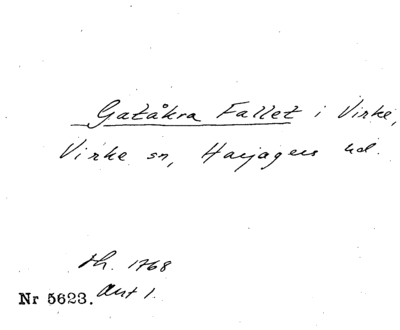 Gatåkra Fallet i Virke,
Virke sn, Harjagers hd.
th. 1768
Nr 5623. Ant 1.